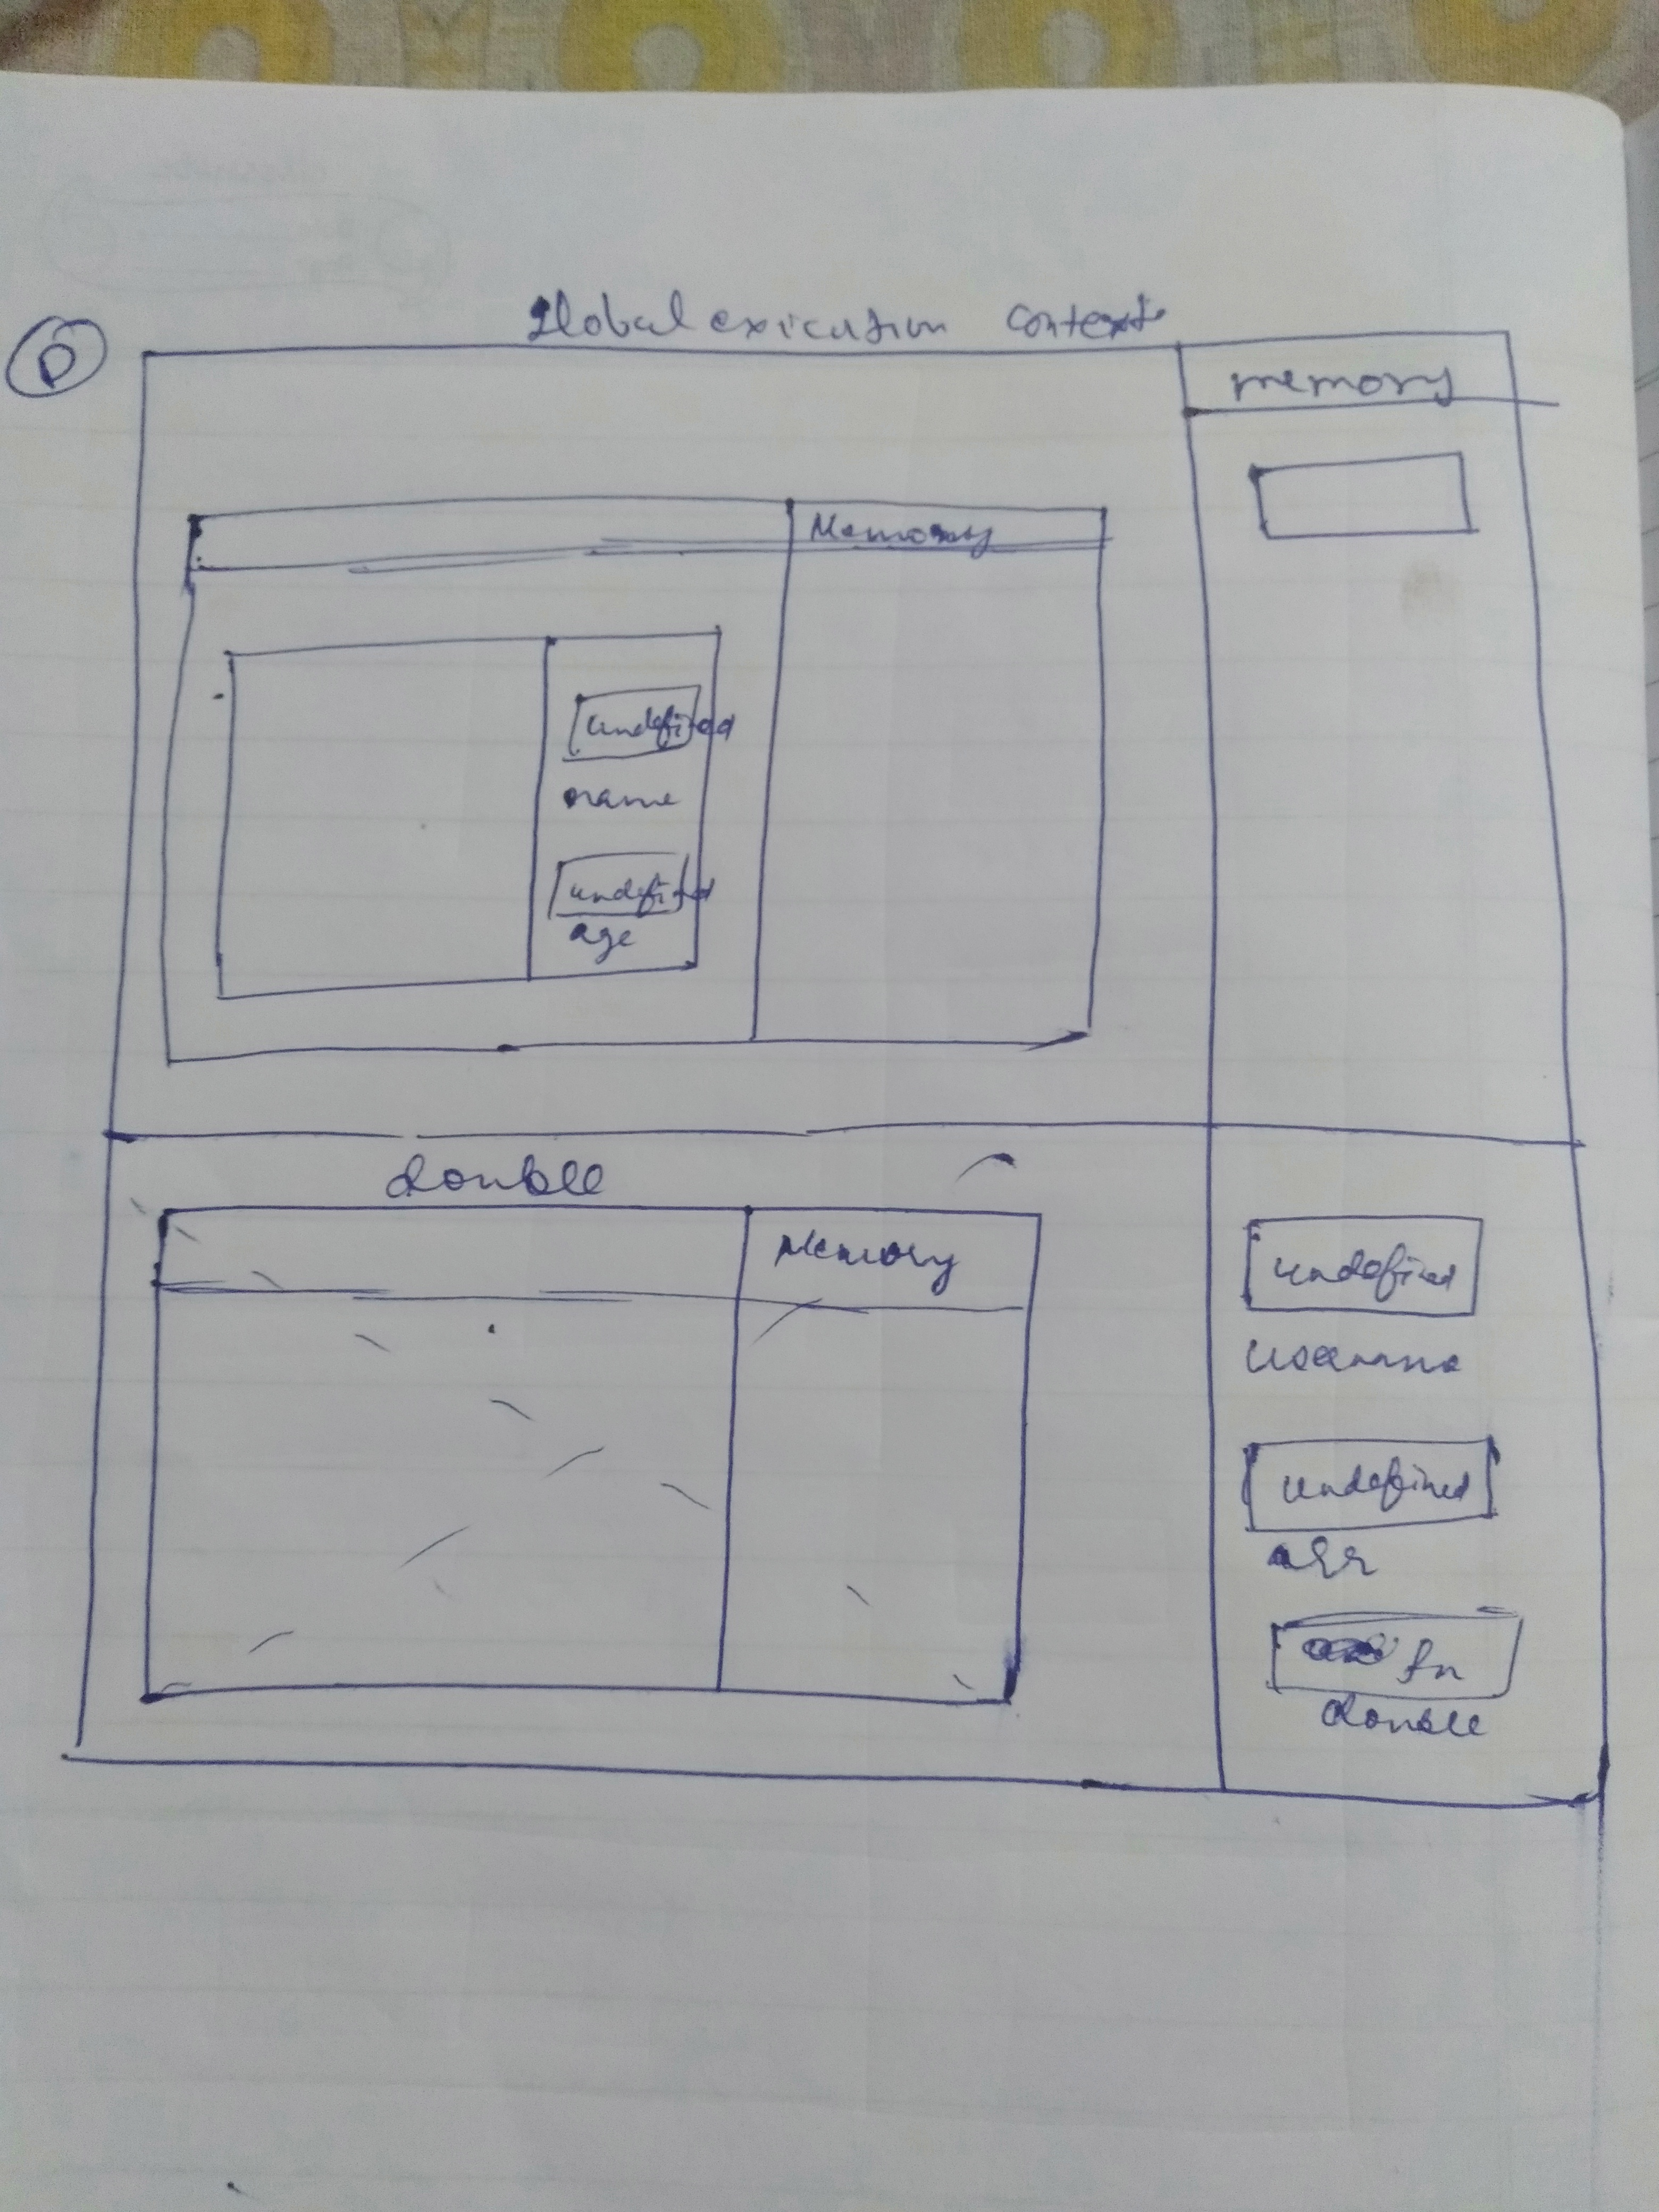 D
Global exicution context
memory
Memory
undefined
name
undefined
age
double
Memory
undefined
username
undefined
arr
fn
double